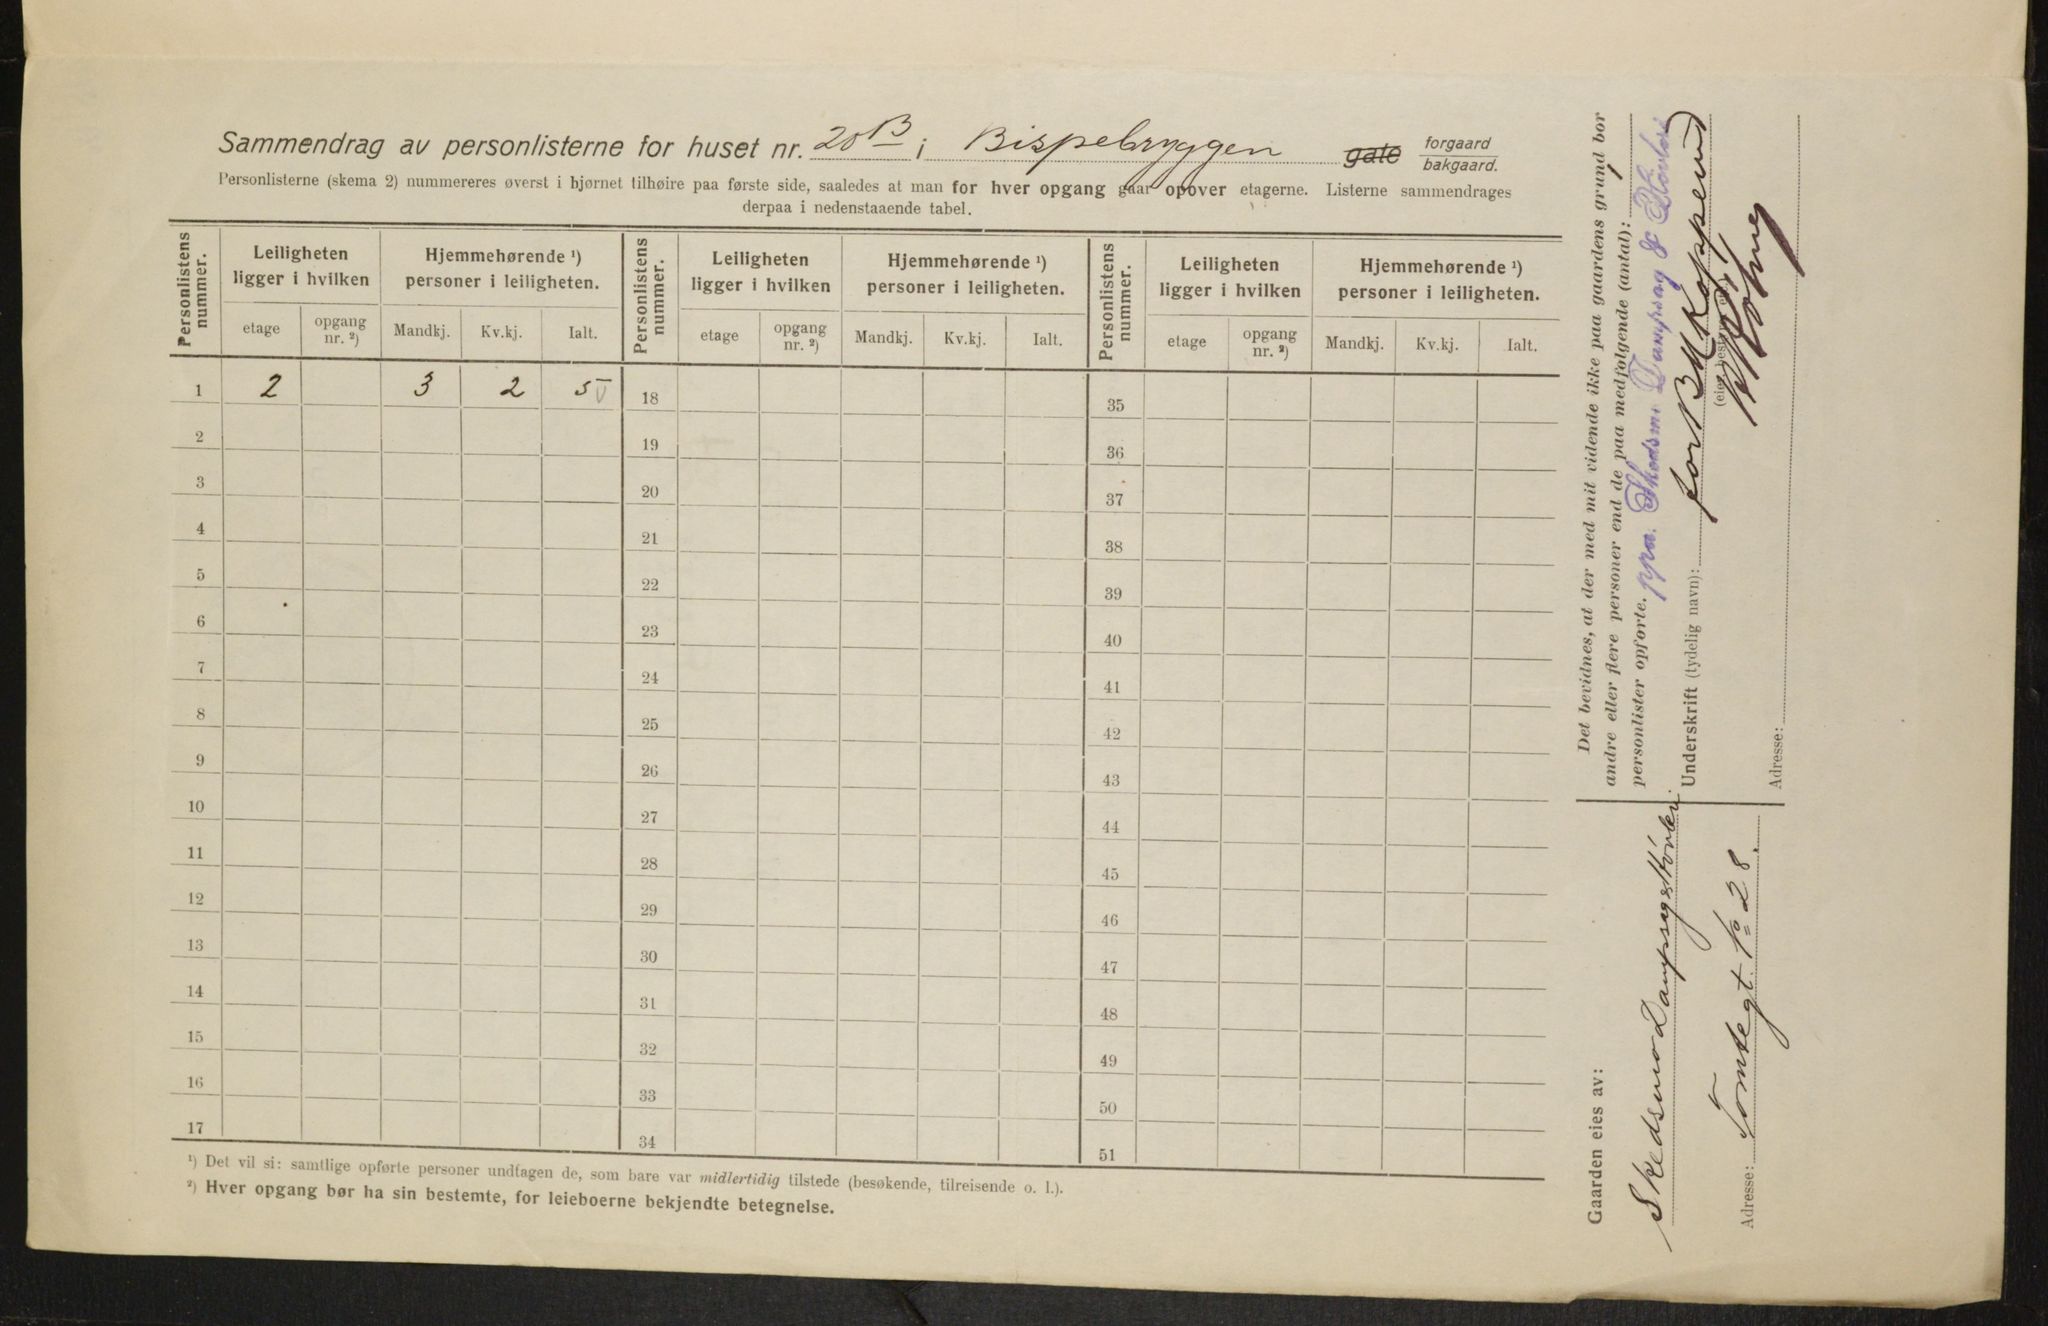 Sammendrag av personlisterne for huset nr. 20 B i Bispebryggen gate forgaard bakgaard.
Personlisterne (skema 2) nummereres øverst i bjørnet tilhøire paa første side, saaledes at man for hver opgang gaar opover etagerne. Listerne sammendrages
derpaa i nedenstaaende tabel.
Personlistens nummer. Leiligheten ligger i hvilken Hjemmehørende ¹) personer i leiligheten. Personlistens nummer. Leiligheten ligger i hvilken Hjemmehørende ¹) personer i leiligheten. Personlistens nummer. Leiligheten ligger i hvilken Hjemmehørende ¹) personer i leiligheten.
etage opgang nr. ²) Mandkj. Kv.kj. Ialt. etage opgang nr. ²) Mandkj. Kv.kj. Ialt. etage opgang nr. ²) Mandkj. Kv.kj. Ialt.
1 2 3 2 5 18 35
2 19 36
3 20 37
4 21 38
5 22 39
6 23 40
7 24 41
8 25 42
9 26 43
10 27 44
11 28 45
12 29 46
13 30 47
14 31 48
15 32 49
16 33 50
17 34 51
¹) Det vil si: samtlige opførte personer undtagen de, som bare var midlertidig tilstede (besøkende, tilreisende o. l.).
²) Hver opgang bør ha sin bestemte, for leieboerne bekjendte betegnelse.
Gaarden eies av:
Skedsmo Dampsag &
Adresse: Tomtegt. No 28.
Det bevidnes, at der med mit vidende ikke paa gaardens grund bor
andre eller flere personer end de paa medfølgende (antal):
personlister opførte. ppa. Skedsmo Dampsag & Høvleri
Underskrift (tydelig navn): for
(eier, bestyrer
Adresse: